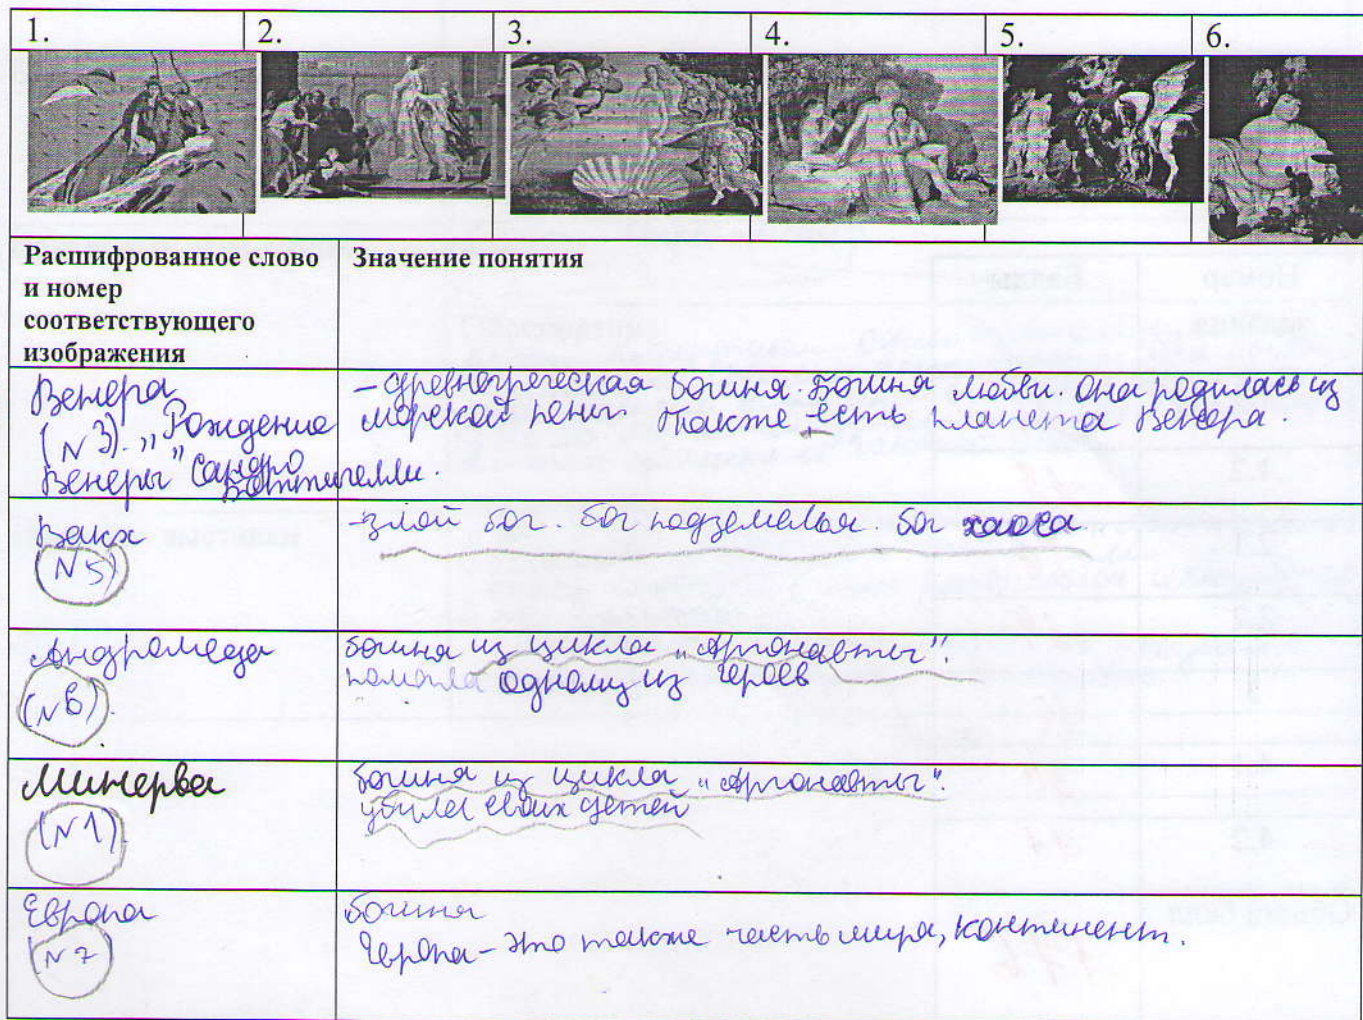 1. 2. 3. 4. 5. 6.
Расшифрованное слово
и номер
соответствующего
изображения
Значение понятия
Венера
(N3). „Рождение
Венеры" Сандро
Боттичелли.
- древнегреческая богиня. Богиня любви. Она родилась из
морской пены. Также есть планета Венера.
Вакх
(N5)
- злой бог. бог подземелья. бог хаоса
Андромеда
(N6).
богиня из цикла „Аргонавты".
помогла одному из героев
Минерва
(N1).
богиня из цикла „Аргонавты".
убила своих детей
Европа
(N7)
богиня
Европа - это также часть мира, континент.